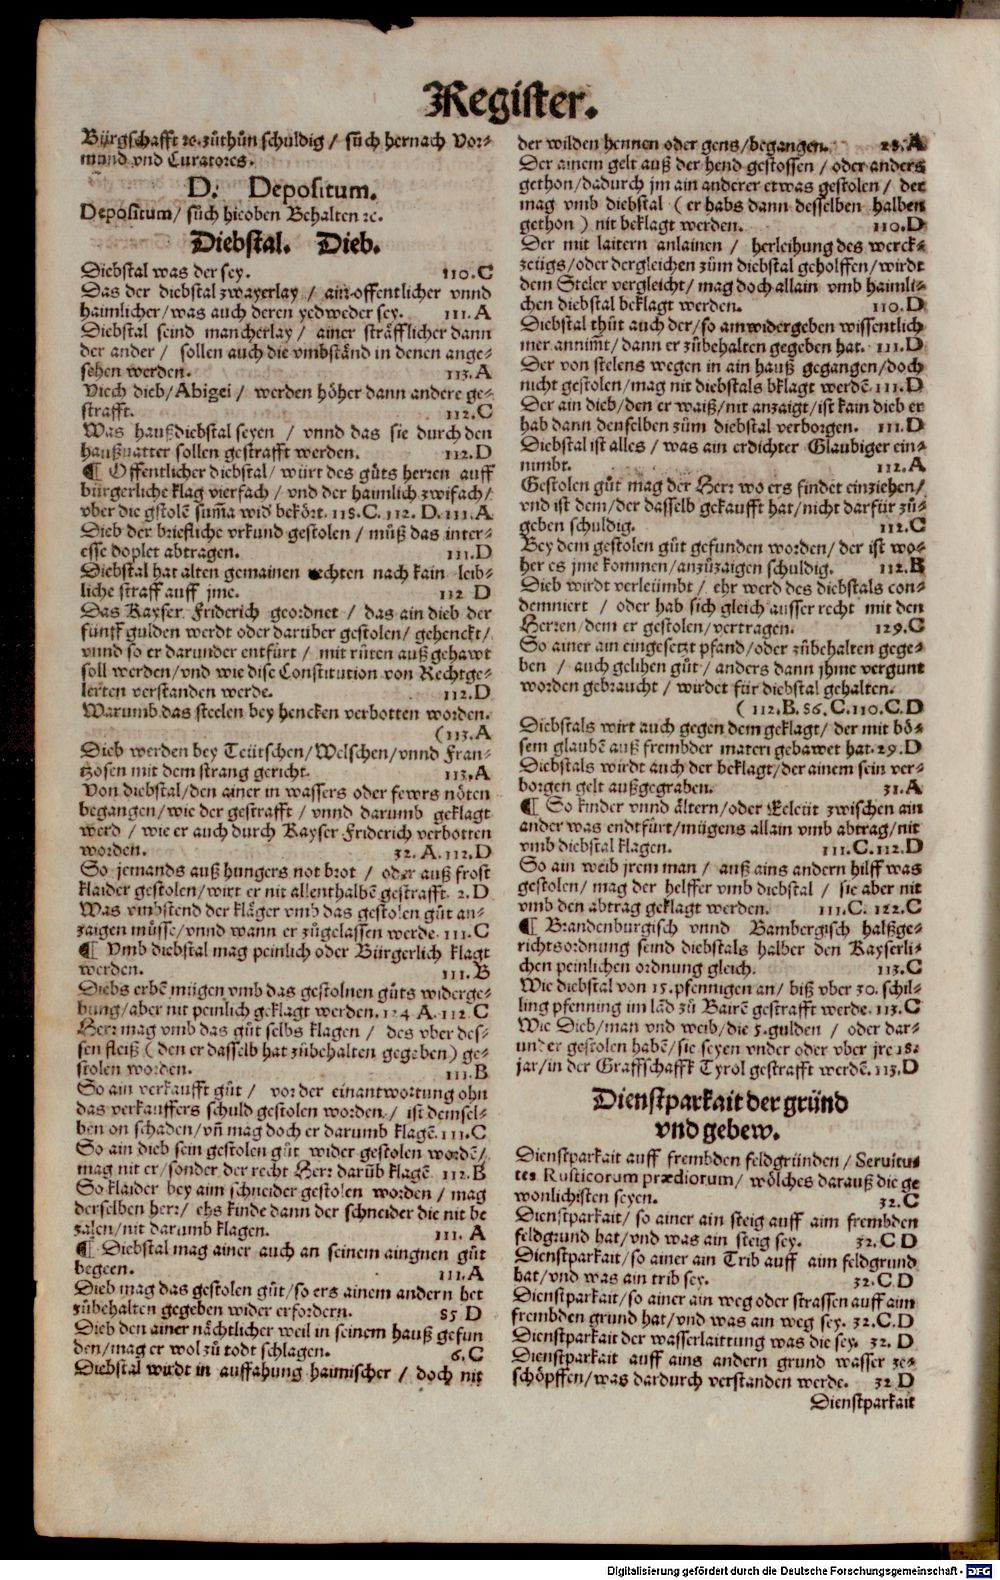 Register.
Bürgschafft ꝛc. zůthůn schuldig / sůch hernach Vor-
mund vnd Curatores.
D. Depositum.
Depositum / sůch hieoben Behalten ꝛc.
Diebstal. Dieb.
Diebstal was der sey. 110.C
Das der diebstal zwayerlay / ain offentlicher vnnd
haimlicher / was auch deren yedweder sey. 111.A
Diebstal seind mancherlay / ainer sträfflicher dann
der ander / sollen auch die vmbständ in denen ange-
sehen werden. 113.A
Viech dieb / Abigei / werden höher dann andere ge-
strafft. 112.C
Was haußdiebstal seyen / vnnd das sie durch den
haußuatter sollen gestrafft werden. 112.D
¶ Offentlicher diebstal / würt des gůts herren auff
bürgerliche klag vierfach / vnd der haimlich zwifach /
vber die gstolē sum̄a wid bekört. 118.C. 112. D. 111.A
Dieb der briefliche vrkund gestolen / můß das inter-
esse doplet abtragen. 111.D
Diebstal hat alten gemainen rechten nach kain leib-
liche straff auff jme. 112 D
Das Kayser Friderich geordnet / das ain dieb der
fünff gulden werdt oder darüber gestolen / gehenckt /
vnnd so er darunder entfürt / mit růten auß gehawt
soll werden / vnd wie dise Constitution von Rechtge-
lerten verstanden werde. 112.D
Warumb das steelen bey hencken verbotten worden.
(113.A
Dieb werden bey Teütschen / Welschen / vnnd Fran-
tzosen mit dem strang gericht. 113.A
Von diebstal / den ainer in wassers oder fewrs nöten
begangen / wie der gestrafft / vnnd darumb geklagt
werd / wie er auch durch Kayser Friderich verbotten
worden. 32. A. 112.D
So jemands auß hungers not brot / oder auß frost
klaider gestolen / wirt er nit allenthalbē gestrafft. 2.D
Was vmbstend der kläger vmb das gestolen gůt an-
zaigen müsse / vnnd wann er zůgelassen werde. 111.C
¶ Vmb diebstal mag peinlich oder Bürgerlich klagt
werden. 111.B
Diebs erbē mügen vmb das gestolnen gůts widerge-
bung / aber nit peinlich geklagt werden. 124 A. 112.C
Herr mag vmb das gůt selbs klagen / des vber des-
sen fleiß (den er dasselb hat zůbehalten gegeben) ge-
stolen worden. 111.B
So ain verkaufft gůt / vor der einantwortung ohn
das verkauffers schuld gestolen worden / ist demsel-
ben on schaden / vn̄ mag doch er darumb klagē. 111.C
So ain dieb sein gestolen gůt wider gestolen wordē /
mag nit er / sonder der recht Herr darūb klagē 112.B
So klaider bey aim schneider gestolen worden / mag
derselben herr / ehs kinde dann der schneider die nit be
zalen / nit darumb klagen. 111. A
¶ Diebstal mag ainer auch an seinem aingnen gůt
begeen. 111.A
Dieb mag das gestolen gůt / so ers ainem andern het
zůbehalten gegeben wider erfordern. 85 D
Dieb den ainer nächtlicher weil in seinem hauß gefun
den / mag er wol zů todt schlagen. 6.C
Diebstal wirdt in auffahung haimischer / doch nit
der wilden hennen oder gens / begangen. 28.A
Der ainem gelt auß der hend gestossen / oder anders
gethon / dadurch jm ain anderer etwas gestolen / der
mag vmb diebstal (er habs dann desselben halben
gethon) nit beklagt werden. 110.D
Der mit laitern anlainen / herleihung des werck-
zeügs / oder dergleichen zům diebstal geholffen / wirdt
dem Steler vergleicht / mag doch allain vmb haimli-
chen diebstal beklagt werden. 110.D
Diebstal thůt auch der / so am widergeben wissentlich
mer annim̄t / dann er zůbehalten gegeben hat. 111.D
Der von stelens wegen in ain hauß gegangen / doch
nicht gestolen / mag nit diebstals bklagt werdē. 111.D
Der ain dieb / den er waiß / nit anzaigt / ist kain dieb er
hab dann denselben zům diebstal verborgen. 111.D
Diebstal ist alles / was ain erdichter Glaubiger ein-
nimbt. 112.A
Gestolen gůt mag der Herr wo ers findet einziehen /
vnd ist dem / der dasselb gekaufft hat / nicht darfür zů-
geben schuldig. 112.C
Bey dem gestolen gůt gefunden worden / der ist wo-
her es jme kommen / anzůzaigen schuldig. 112.B
Dieb wirdt verleümbt / ehr werd es diebstals con-
demniert / oder hab sich gleich ausser recht mit den
Herren / dem er gestolen / vertragen. 129.C
So ainer am eingesetzt pfand / oder zůbehalten gege-
ben / auch gelihen gůt / anders dann jhme vergunt
worden gebraucht / wirdet für diebstal gehalten.
(112.B. 86. C. 110.C.D
Diebstals wirt auch gegen dem geklagt / der mit bö-
sem glaubē auß frembder materi gebawet hat. 29.D
Diebstals wirdt auch der beklagt / der ainem sein ver-
borgen gelt außgegraben. 31.A
¶ So kinder vnnd ältern / oder Eeleüt zwischen ain
ander was endtfürt / mügens allain vmb abtrag / nit
vmb diebstal klagen. 111.C. 112.D
So ain weib jrem man / auß ains andern hilff was
gestolen / mag der helffer vmb diebstal / sie aber nit
vmb den abtrag geklagt werden. 111.C. 122.C
¶ Brandenburgisch vnnd Bambergisch halßge-
richtsordnung seind diebstals halber den Kayserli-
chen peinlichen ordnung gleich. 113.C
Wie diebstal von 15. pfennigen an / biß vber 30. schil-
ling pfenning im lād zů Bairē gestrafft werde. 113.C
Wie Dieb / man vnd weib / die 5. gulden / oder dar-
under gestolen habē / sie seyen vnder oder vber jre 18.
jar / in der Graffschafft Tyrol gestrafft werdē. 113.D
Dienstparkait der gründ
vnd gebew.
Dienstparkait auff frembden feldgründen / Seruitu-
tes Rusticorum prædiorum / wölches darauß die ge
wonlichisten seyen. 32.C
Dienstparkait / so ainer ain steig auff aim frembden
feldgrund hat / vnd was ain steig sey. 32.C D
Dienstparkait / so ainer ain Trib auff aim feldgrund
hat / vnd was ain trib sey. 32.C D
Dienstparkait / so ainer ain weg oder strassen auff aim
frembden grund hat / vnd was ain weg sey. 32.C.D
Dienstparkait der wasserlaittung was die sey. 32. D
Dienstparkait auff ains andern grund wasser ze-
schöpffen / was dardurch verstanden werde. 32 D
Dienstparkait
Digitalisierung gefördert durch die Deutsche Forschungsgemeinschaft - DFG